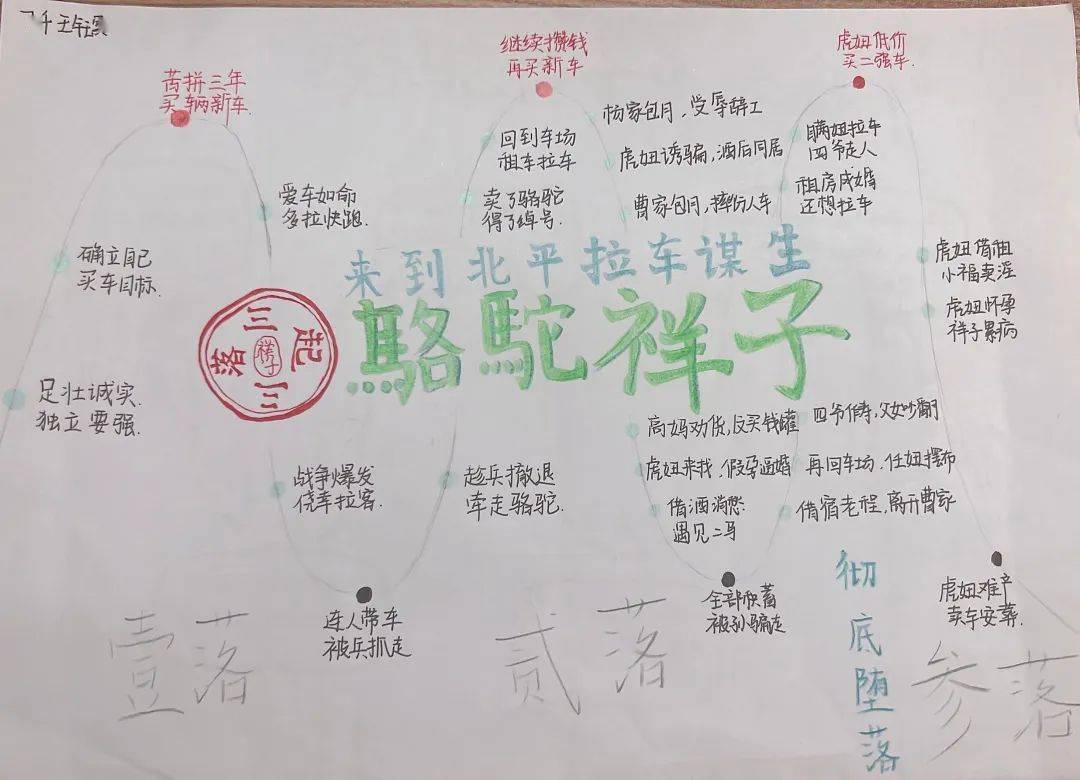 苦拼三年
买辆新车.
继续攒钱
再买新车
虎妞低价
买二强车.
确立自己
买车目标.
爱车如命
多拉快跑.
足壮诚实.
独立要强.
回到车场
租车拉车
卖了骆驼
得了绰号.
杨家包月，受辱辞工
虎妞诱骗，酒后同居
曹家包月，摔伤人车
瞒妞拉车
四爷走人
租房成婚
还想拉车
虎妞借租
小福卖淫
虎妞怀孕
祥子累病
来到北平拉车谋生
駱駝祥子
三起三落
祥子
战争爆发
侥幸拉客.
趁兵撤退
牵走骆驼.
高妈劝贷，反买钱罐
虎妞来找，假孕逼婚
借酒消愁.
遇见二马
四爷作寿，父女吵翻
再回车场，任妞摆布
借宿老程，离开曹家
连人带车
被兵抓走
全部积蓄
被孙骗走
虎妞难产
卖车安葬.
壹落
贰落
参落
彻底堕落